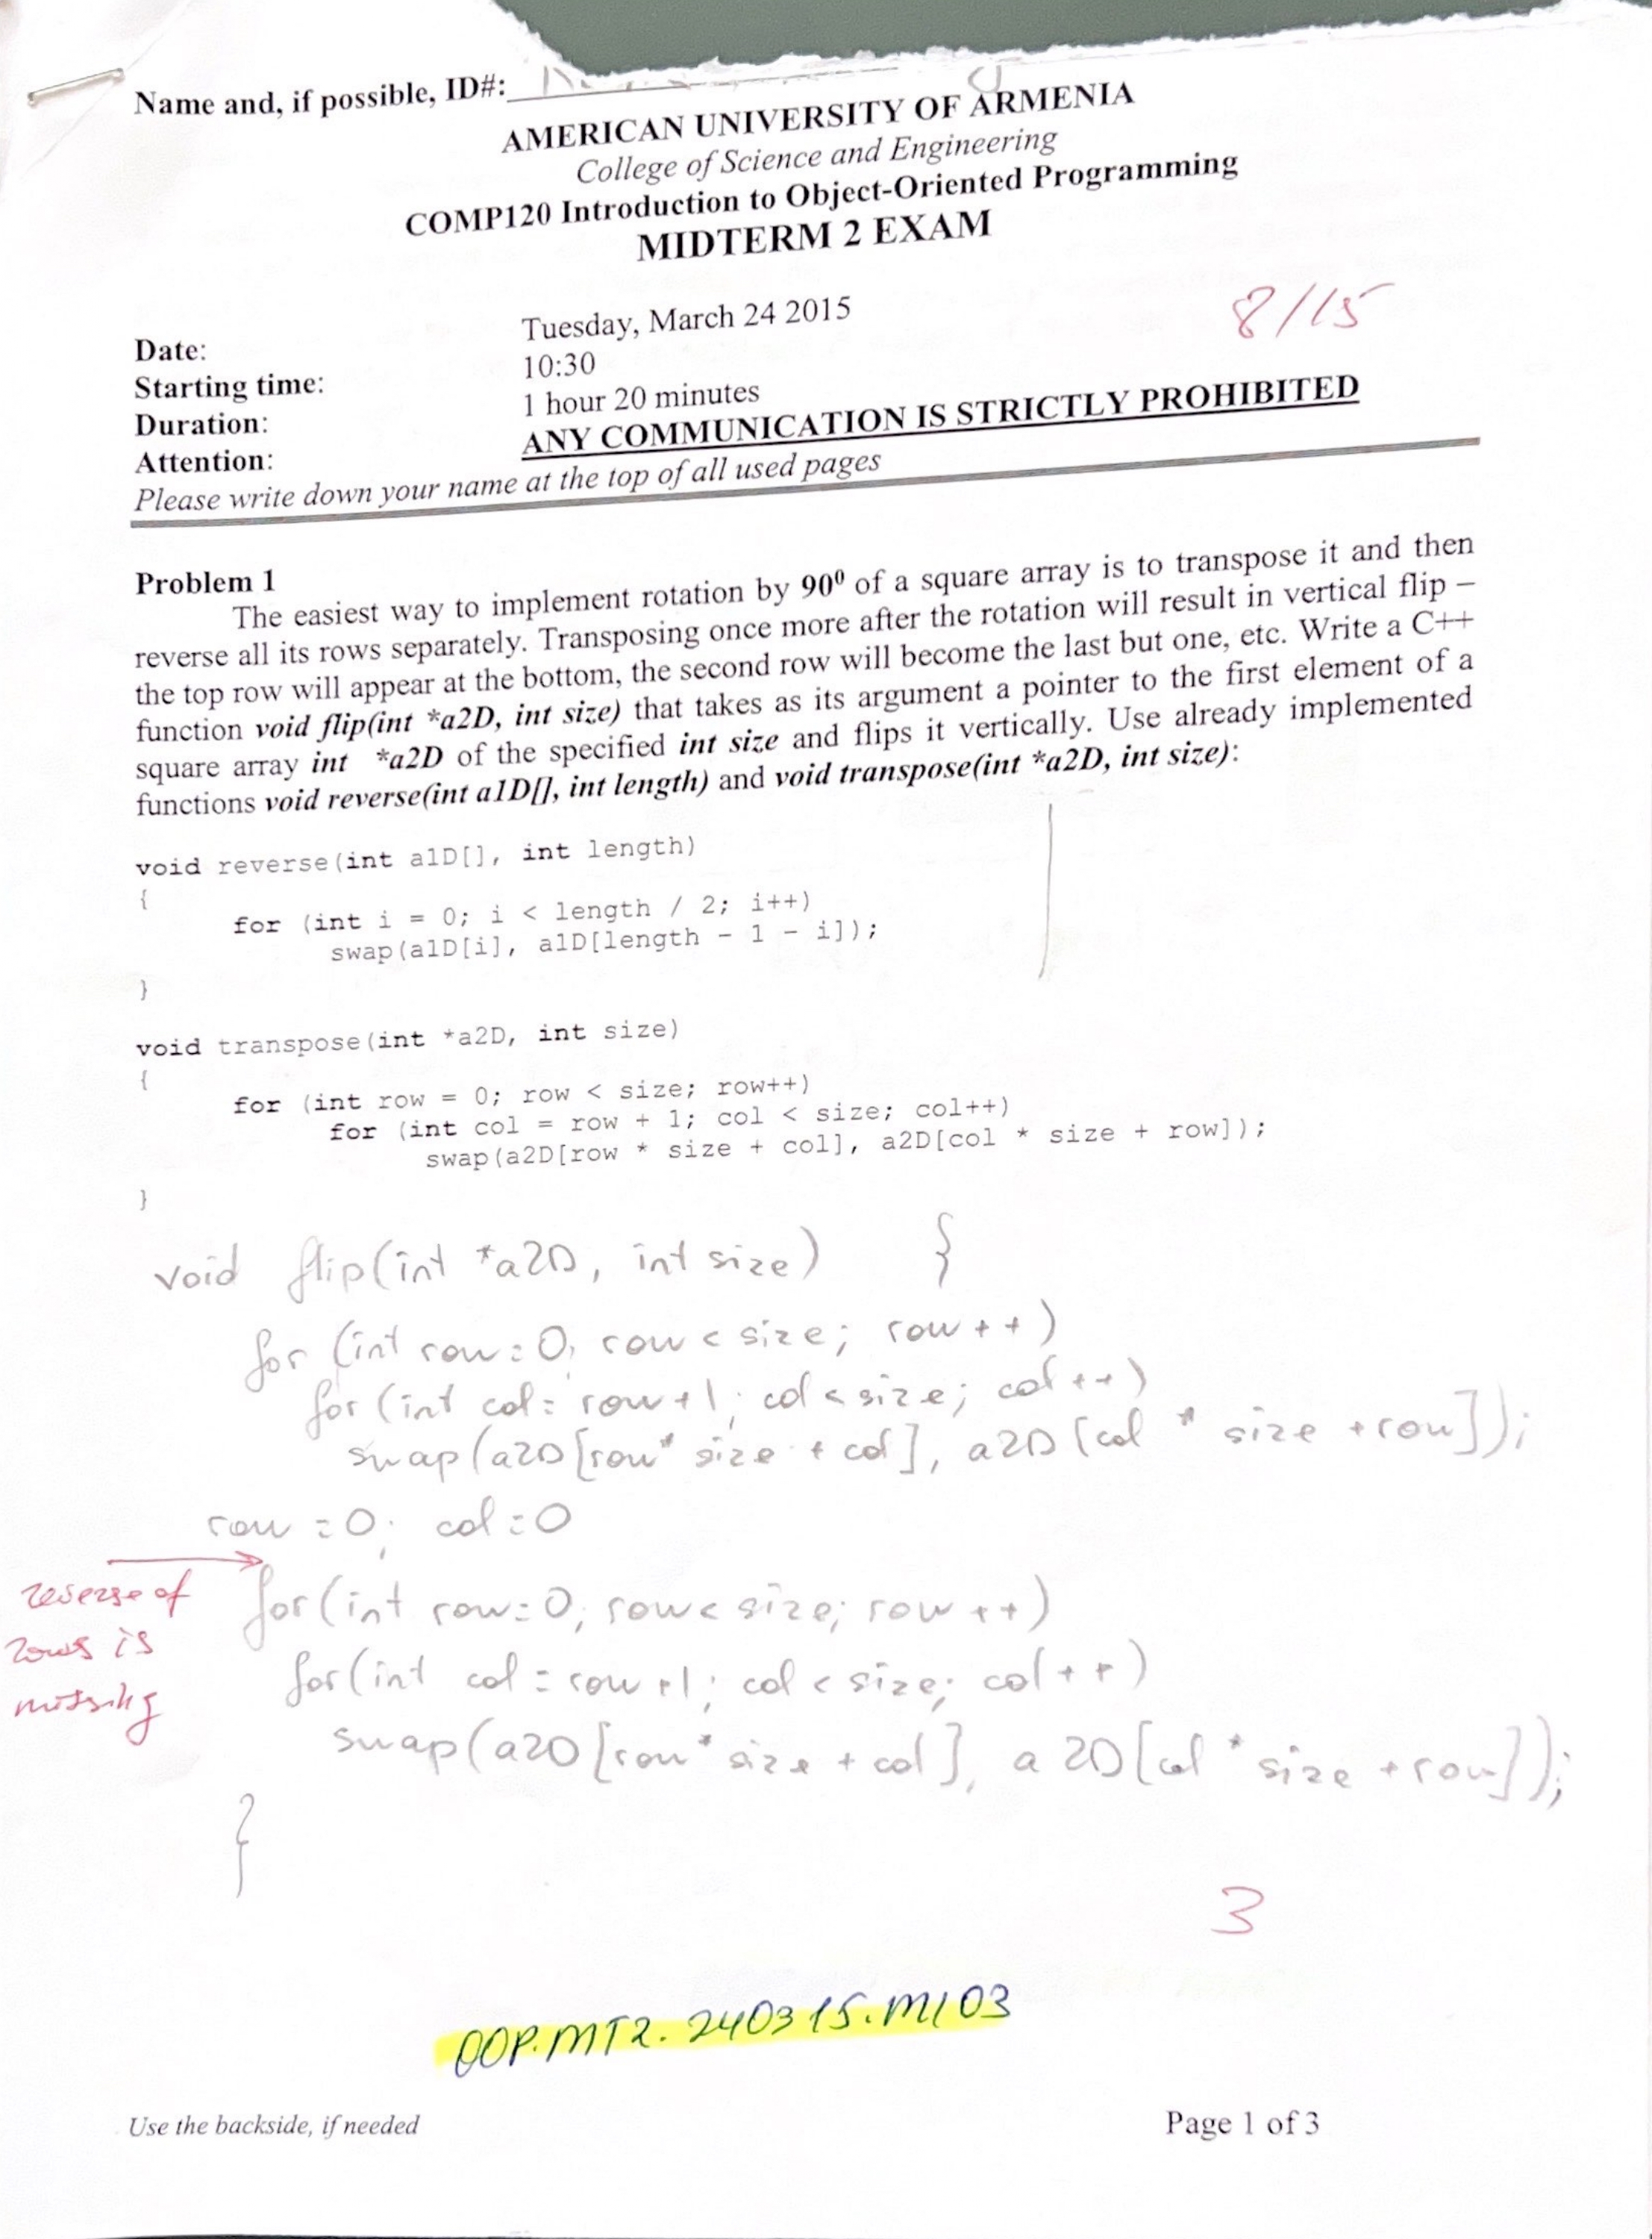 Name and, if possible, ID#:
AMERICAN UNIVERSITY OF ARMENIA
College of Science and Engineering
COMP120 Introduction to Object-Oriented Programming
MIDTERM 2 EXAM
8/15
Date: Tuesday, March 24 2015
Starting time: 10:30
Duration: 1 hour 20 minutes
Attention: ANY COMMUNICATION IS STRICTLY PROHIBITED
Please write down your name at the top of all used pages
Problem 1
The easiest way to implement rotation by 90⁰ of a square array is to transpose it and then
reverse all its rows separately. Transposing once more after the rotation will result in vertical flip –
the top row will appear at the bottom, the second row will become the last but one, etc. Write a C++
function void flip(int *a2D, int size) that takes as its argument a pointer to the first element of a
square array int *a2D of the specified int size and flips it vertically. Use already implemented
functions void reverse(int a1D[], int length) and void transpose(int *a2D, int size):
void reverse(int a1D[], int length)
{
for (int i = 0; i < length / 2; i++)
swap(a1D[i], a1D[length - 1 - i]);
}
void transpose(int *a2D, int size)
{
for (int row = 0; row < size; row++)
for (int col = row + 1; col < size; col++)
swap(a2D[row * size + col], a2D[col * size + row]);
}
void flip(int *a2D, int size) {
for (int row=0; row < size; row++)
for (int col= row+1; col < size; col++)
swap(a2D[row* size + col], a2D[col * size +row]);
row =0; col=0
reverse of
rows is
missing
for(int row=0; row< size; row++)
for(int col=row+1; col < size; col++)
swap(a2D[row* size + col], a2D[col * size +row]);
}
3
OOP.MT2.240315.M103
Use the backside, if needed
Page 1 of 3